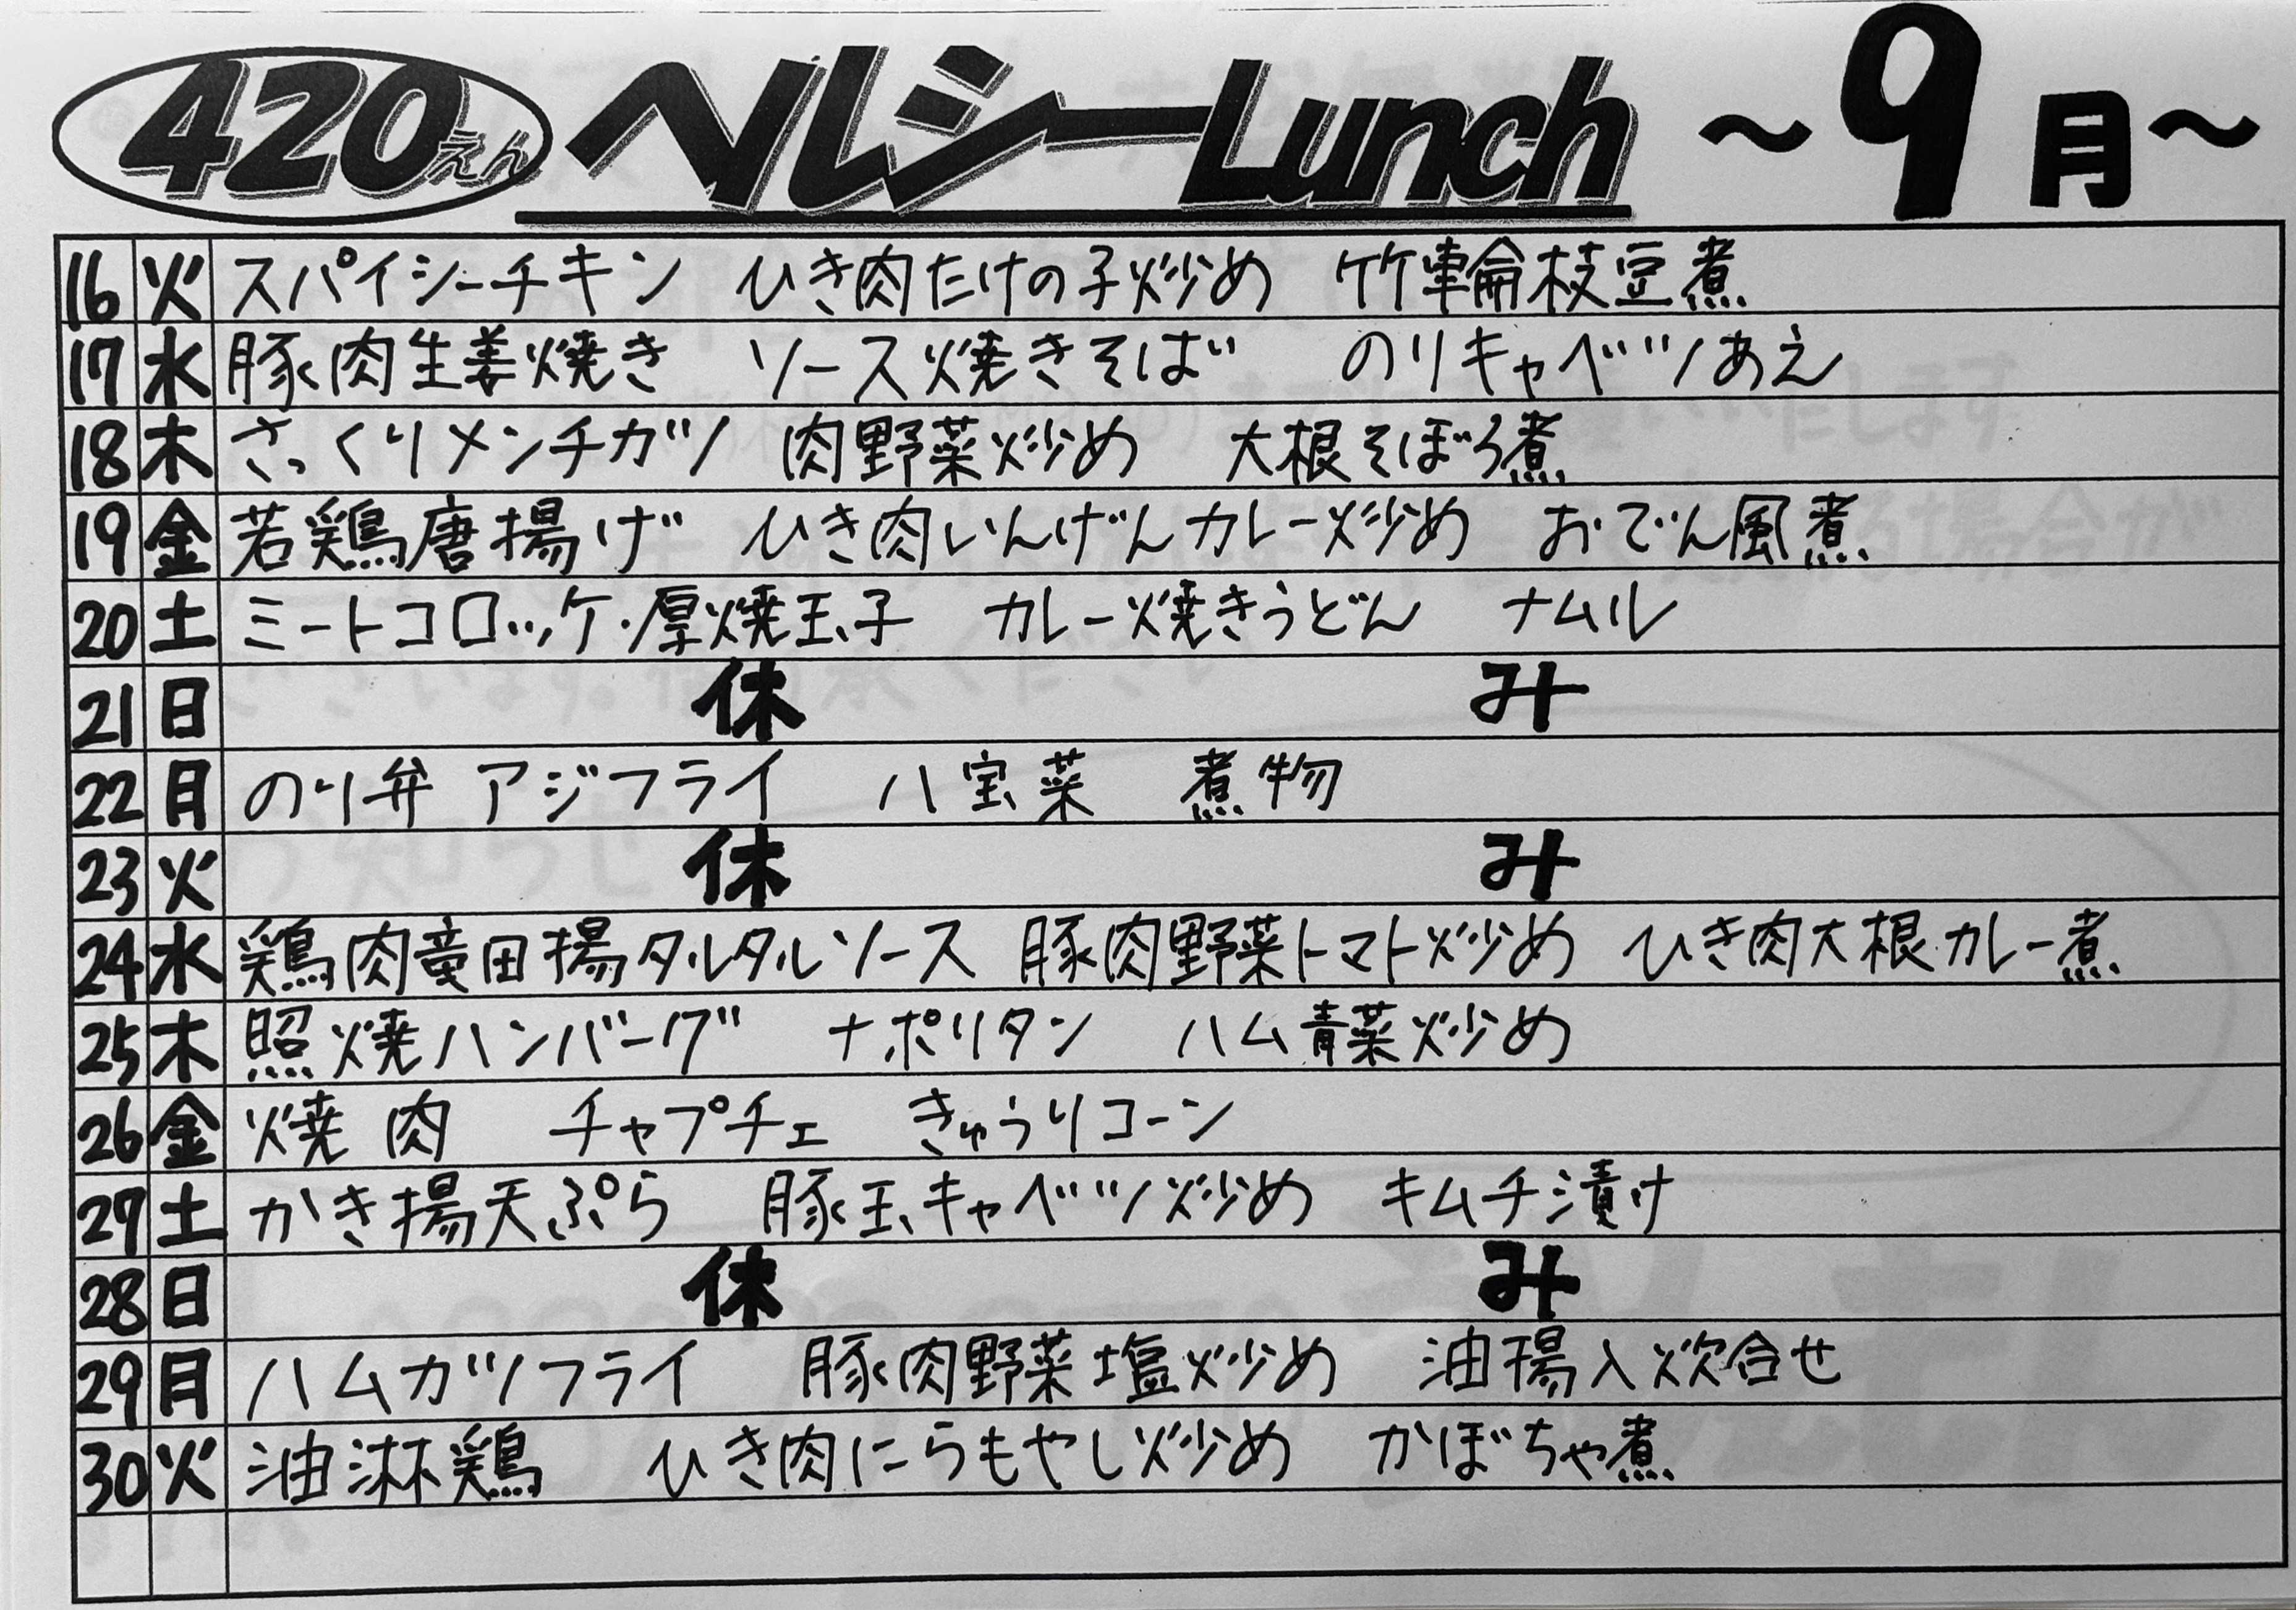 420えん ヘルシーLunch ~9月~
16 火 スパイシーチキン ひき肉たけの子炒め 竹輪枝豆煮
17 水 豚肉生姜焼き ソース焼きそば のりキャベツあえ
18 木 さっくりメンチカツ 肉野菜炒め 大根そぼろ煮
19 金 若鶏唐揚げ ひき肉いんげんカレー炒め おでん風煮
20 土 ミートコロッケ・厚焼玉子 カレー焼きうどん ナムル
21 日 休み
22 月 のり弁 アジフライ 八宝菜 煮物
23 火 休み
24 水 鶏肉竜田揚タルタルソース 豚肉野菜トマト炒め ひき肉大根カレー煮
25 木 照焼ハンバーグ ナポリタン ハム青菜炒め
26 金 焼肉 チャプチェ きゅうりコーン
27 土 かき揚天ぷら 豚玉キャベツ炒め キムチ漬け
28 日 休み
29 月 ハムカツフライ 豚肉野菜塩炒め 油揚入炊合せ
30 火 油淋鶏 ひき肉にらもやし炒め かぼちゃ煮